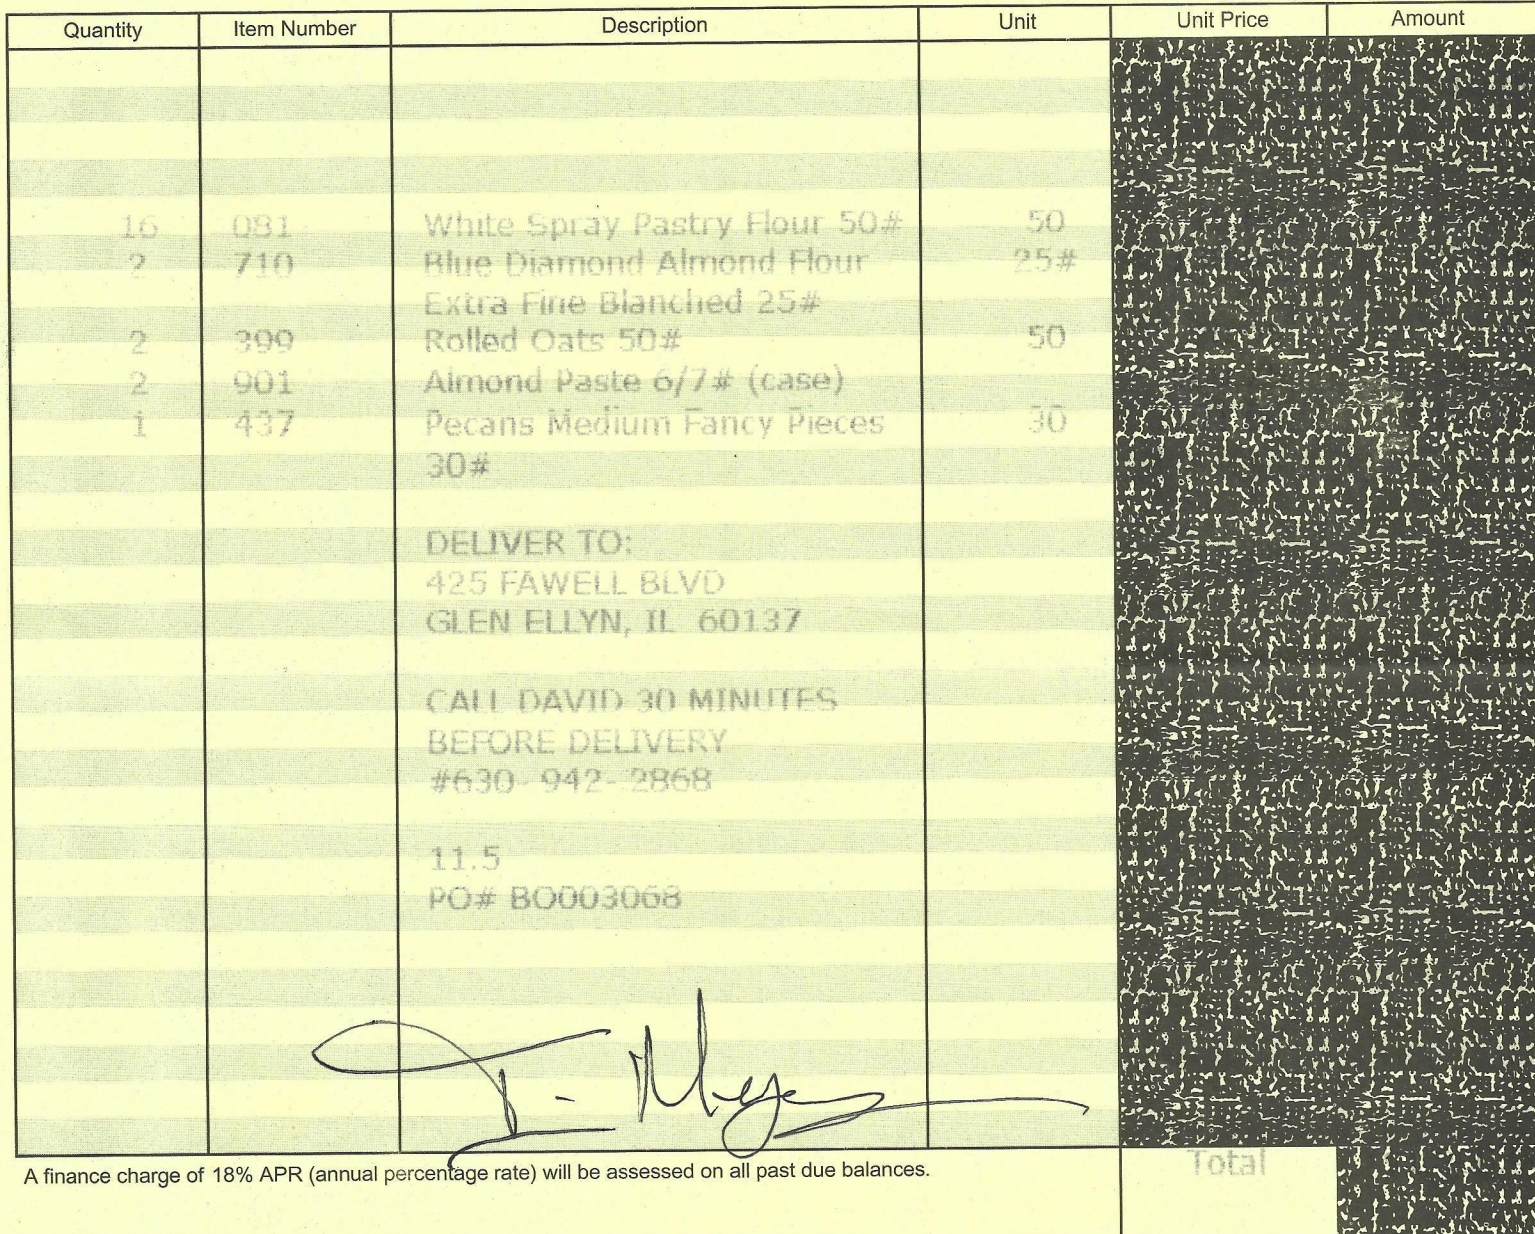 Quantity Item Number Description Unit Unit Price Amount
16 081 White Spray Pastry Flour 50# 50
2 710 Blue Diamond Almond Flour 25#
Extra Fine Blanched 25#
2 399 Rolled Oats 50# 50
2 901 Almond Paste 6/7# (case)
1 437 Pecans Medium Fancy Pieces 30
30#
DELIVER TO:
425 FAWELL BLVD
GLEN ELLYN, IL 60137
CALL DAVID 30 MINUTES
BEFORE DELIVERY
#630-942-2868
11.5
PO# BO003068
A finance charge of 18% APR (annual percentage rate) will be assessed on all past due balances.
Total